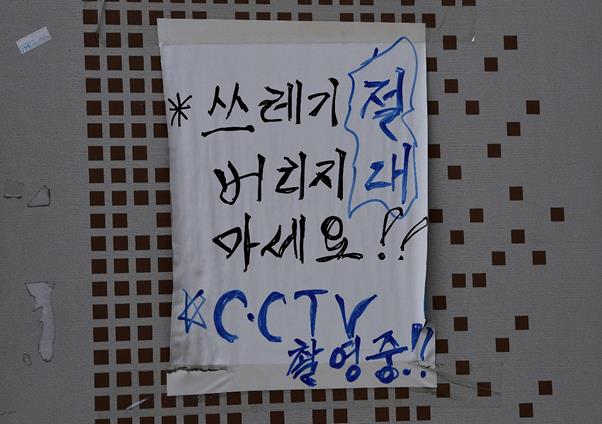 * 쓰레기 절대
버리지
마세요!!
☆ C·CTV
촬영중!!